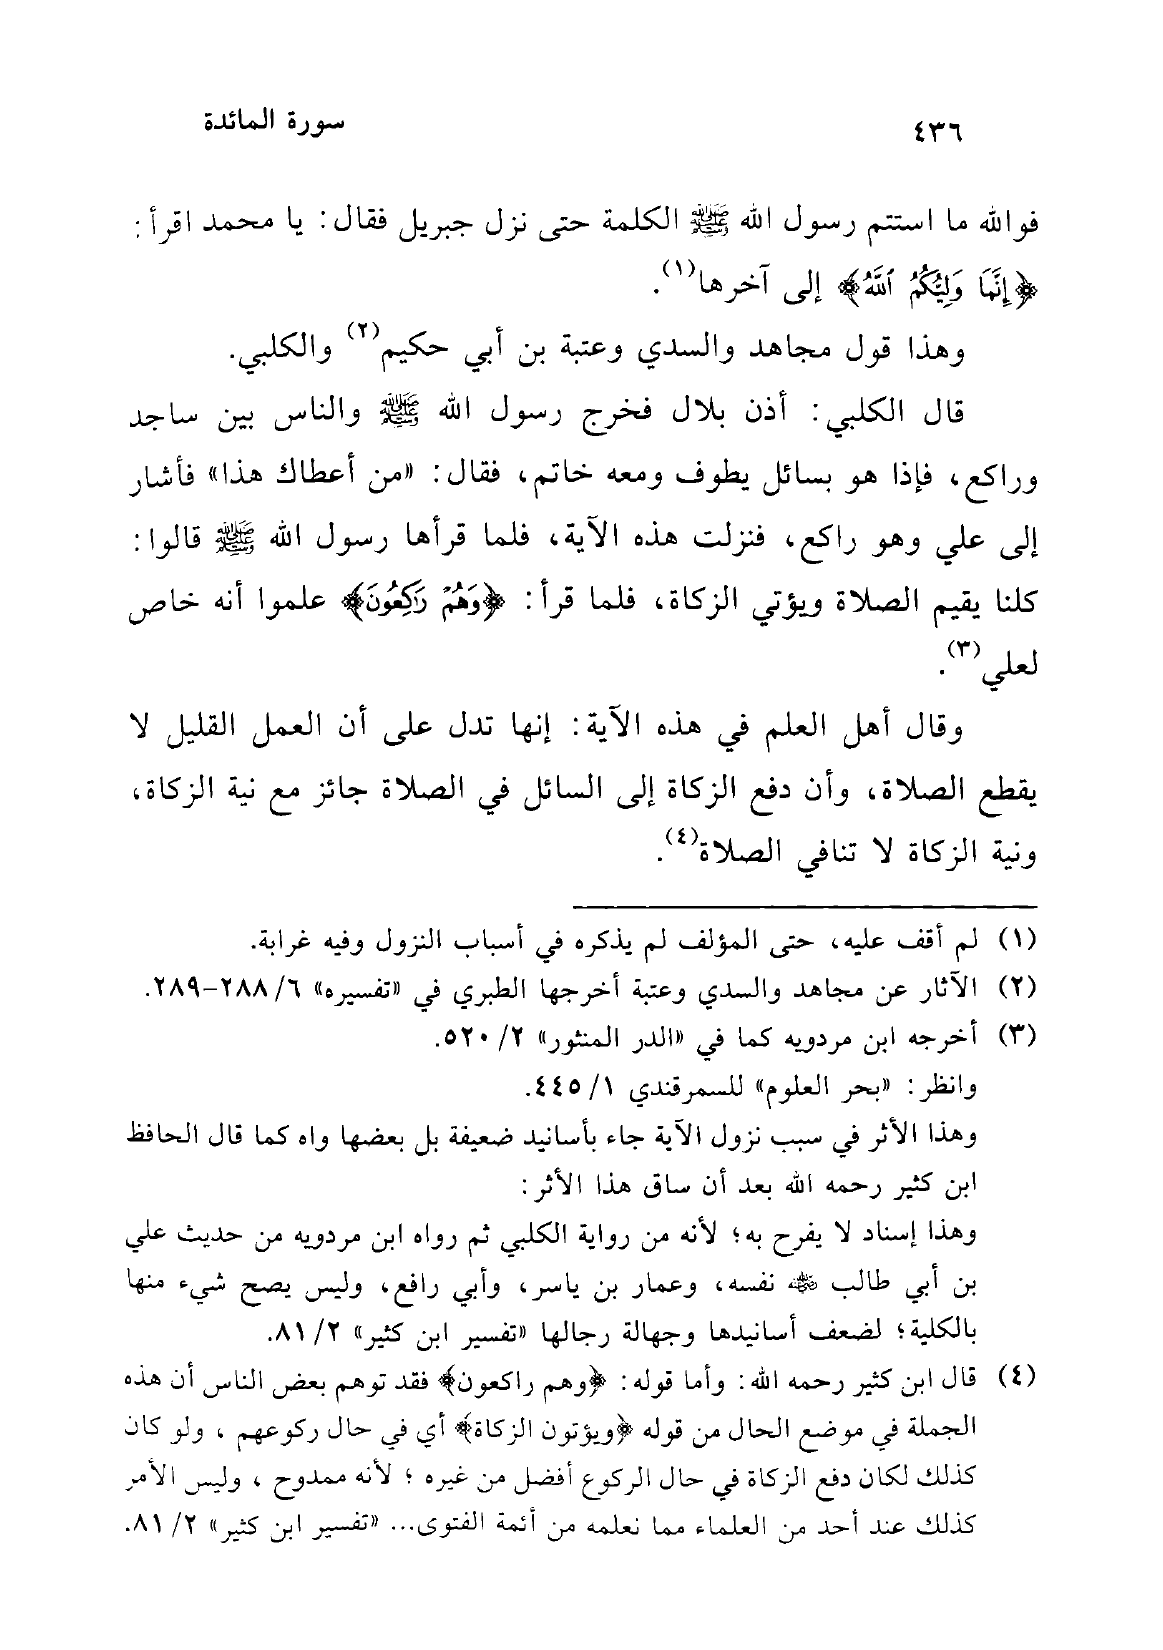 ٤٣٦
سورة المائدة
فوالله ما استتم رسول الله ﷺ الكلمة حتى نزل جبريل فقال: يا محمد اقرأ:
﴿إِنَّمَا وَلِيُّكُمُ ٱللَّهُ﴾ إلى آخرها(١).
وهذا قول مجاهد والسدي وعتبة بن أبي حكيم(٢) والكلبي.
قال الكلبي: أذن بلال فخرج رسول الله ﷺ والناس بين ساجد
وراكع، فإذا هو بسائل يطوف ومعه خاتم، فقال: «من أعطاك هذا» فأشار
إلى علي وهو راكع، فنزلت هذه الآية، فلما قرأها رسول الله ﷺ قالوا:
كلنا يقيم الصلاة ويؤتي الزكاة، فلما قرأ: ﴿وَهُمْ رَاكِعُونَ﴾ علموا أنه خاص
لعلي(٣).
وقال أهل العلم في هذه الآية: إنها تدل على أن العمل القليل لا
يقطع الصلاة، وأن دفع الزكاة إلى السائل في الصلاة جائز مع نية الزكاة،
ونية الزكاة لا تنافي الصلاة(٤).
(١) لم أقف عليه، حتى المؤلف لم يذكره في أسباب النزول وفيه غرابة.
(٢) الآثار عن مجاهد والسدي وعتبة أخرجها الطبري في «تفسيره» ٦/ ٢٨٨-٢٨٩.
(٣) أخرجه ابن مردويه كما في «الدر المنثور» ٢/ ٥٢٠.
وانظر: «بحر العلوم» للسمرقندي ١/ ٤٤٥.
وهذا الأثر في سبب نزول الآية جاء بأسانيد ضعيفة بل بعضها واه كما قال الحافظ
ابن كثير رحمه الله بعد أن ساق هذا الأثر:
وهذا إسناد لا يفرح به؛ لأنه من رواية الكلبي ثم رواه ابن مردويه من حديث علي
بن أبي طالب ﷺ نفسه، وعمار بن ياسر، وأبي رافع، وليس يصح شيء منها
بالكلية؛ لضعف أسانيدها وجهالة رجالها «تفسير ابن كثير» ٢/ ٨١.
(٤) قال ابن كثير رحمه الله: وأما قوله: ﴿وهم راكعون﴾ فقد توهم بعض الناس أن هذه
الجملة في موضع الحال من قوله ﴿ويؤتون الزكاة﴾ أي في حال ركوعهم ، ولو كان
كذلك لكان دفع الزكاة في حال الركوع أفضل من غيره ؛ لأنه ممدوح ، وليس الأمر
كذلك عند أحد من العلماء مما نعلمه من أئمة الفتوى... «تفسير ابن كثير» ٢/ ٨١.